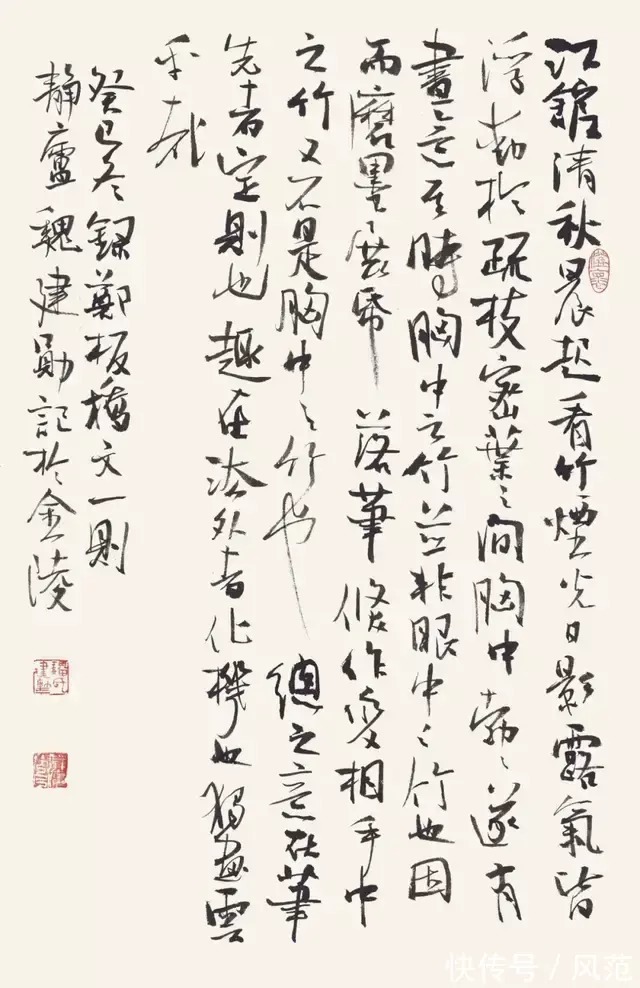 江館清秋晨起看竹煙光日影露氣皆
浮動於疏枝密葉之間胸中勃勃遂有
畫意其時胸中之竹並非眼中之竹也因
而磨墨展帋落筆倏作變相手中
之竹又不是胸中之竹也總之意在筆
先者定則也趣在法外者化機也獨畫雲
乎哉
癸巳冬錄鄭板橋文一則
靜廬魏建勛記於金陵
快传号 / 风范